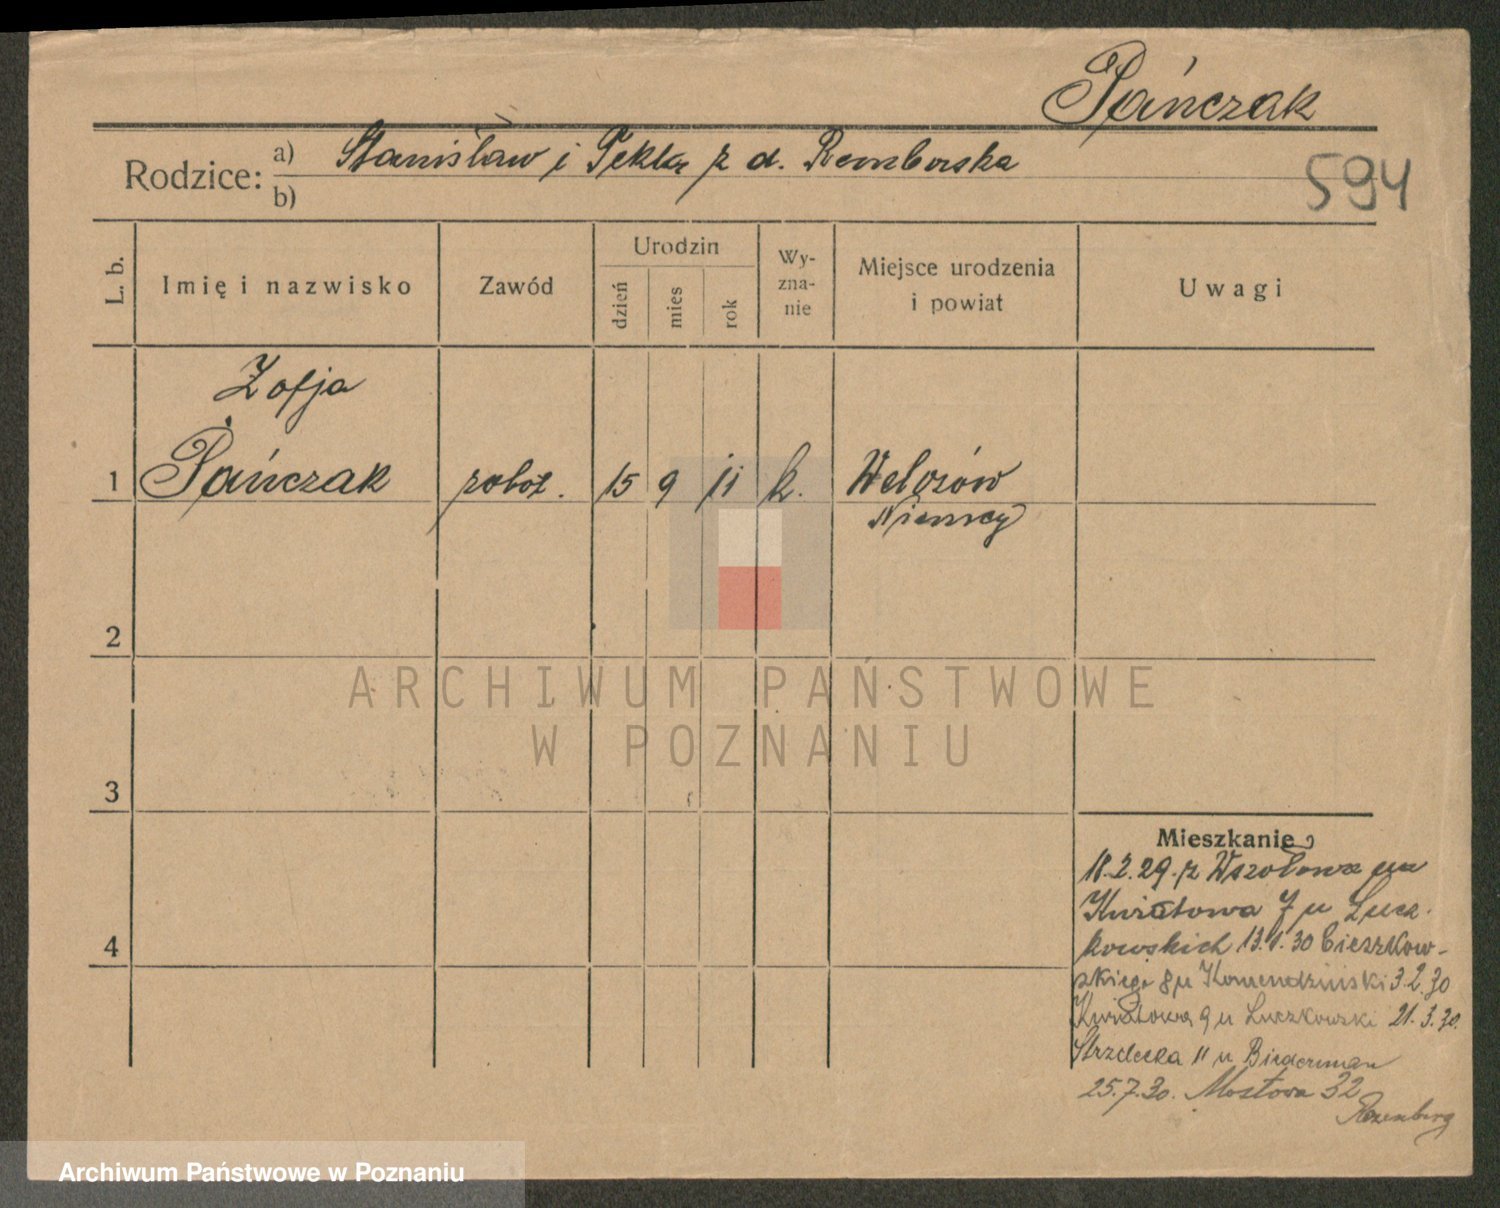 Pańczak
Rodzice: a) Stanisław i Tekla z d. Remborska
b)
594
L. b.
Imię i nazwisko
Zawód
Urodzin
dzień
mies
rok
Wy-
zna-
nie
Miejsce urodzenia
i powiat
Uwagi
Zofja
1 Pańczak robot. 15 9 11 k. Welozów
Niemcy
2
3
4
ARCHIWUM PAŃSTWOWE
W POZNANIU
Mieszkanie
18.2.29. z Wszołowa na
Kwiatowa 7 u Lucz-
kowskich 13.1.30 Cieszkow-
skiego 8 u Komendziński 3.2.30
Kwiatowa 9 u Luczkowski 21.3.30.
Strzelecka 11 u Biederman
25.7.30. Mostowa 32
Rozenberg
Archiwum Państwowe w Poznaniu